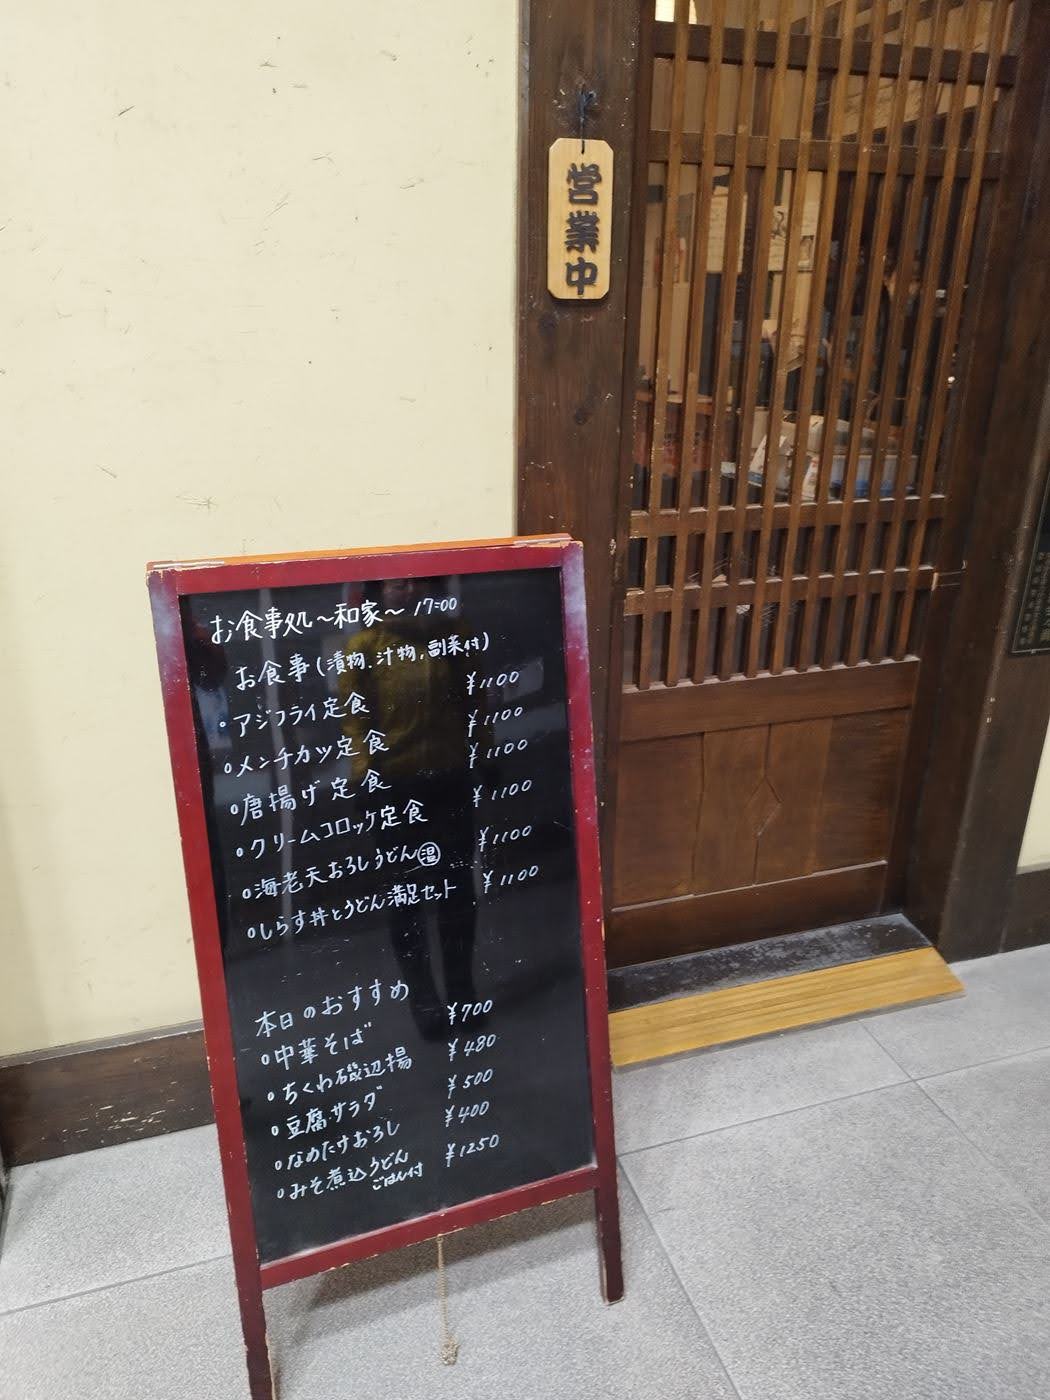 営業中
お食事処~和家~ 17:00
お食事(漬物、汁物、副菜付)
・アジフライ定食 ¥1100
○メンチカツ定食 ¥1100
○唐揚げ定食 ¥1100
○クリームコロッケ定食 ¥1100
○海老天おろしうどん㊌ ¥1100
○しらす丼とうどん満足セット ¥1100
本日のおすすめ
○中華そば ¥700
○ちくわ磯辺揚 ¥480
○豆腐サラダ ¥500
○なめたけおろし ¥400
○みそ煮込うどん ¥1250
ごはん付